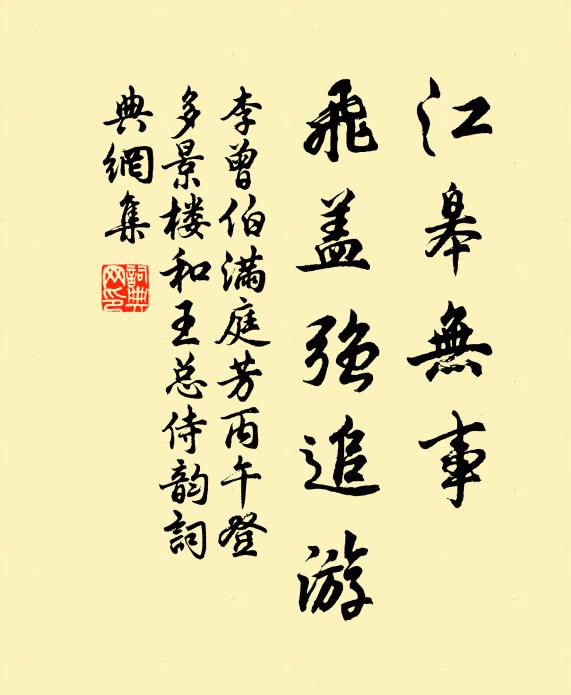 江皋無事
飛盖强追游
李曾伯满庭芳丙午登
多景楼和王总侍韵詞
典網集
詞典网印